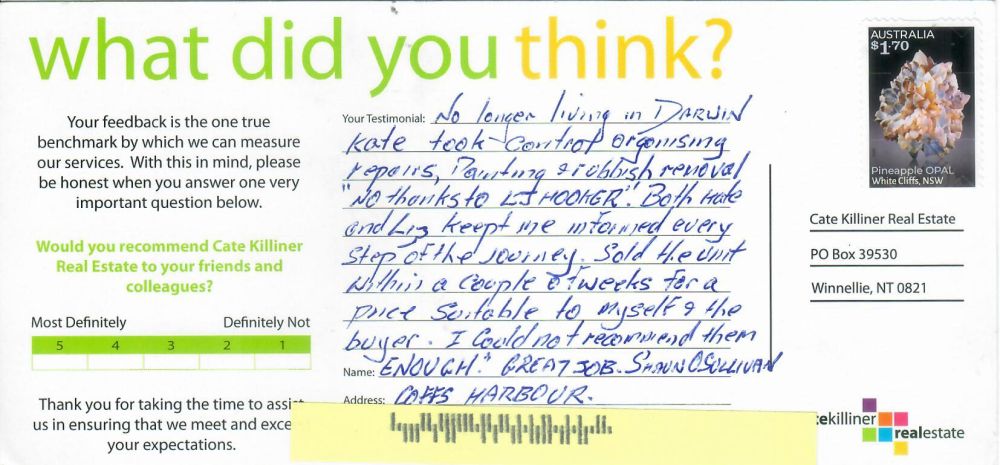 what did you think?
AUSTRALIA
$1.70
Pineapple OPAL
White Cliffs, NSW
Your feedback is the one true
benchmark by which we can measure
our services. With this in mind, please
be honest when you answer one very
important question below.
Would you recommend Cate Killiner
Real Estate to your friends and
colleagues?
Most Definitely Definitely Not
5 4 3 2 1
Thank you for taking the time to assist
us in ensuring that we meet and excee
your expectations.
Your Testimonial: No longer living in DARWIN
Kate took control organising
repairs, Painting & rubbish removal
"NO thanks to LJ HOOKER". Both Kate
and Liz keept me informed every
step of the journey. Sold the unit
within a couple of weeks for a
price suitable to myself & the
buyer. I could not recommend them
Name: ENOUGH." GREAT JOB. SHAUN O'SULLIVAN
Address: COFFS HARBOUR.
Cate Killiner Real Estate
PO Box 39530
Winnellie, NT 0821
tekilliner
realestate